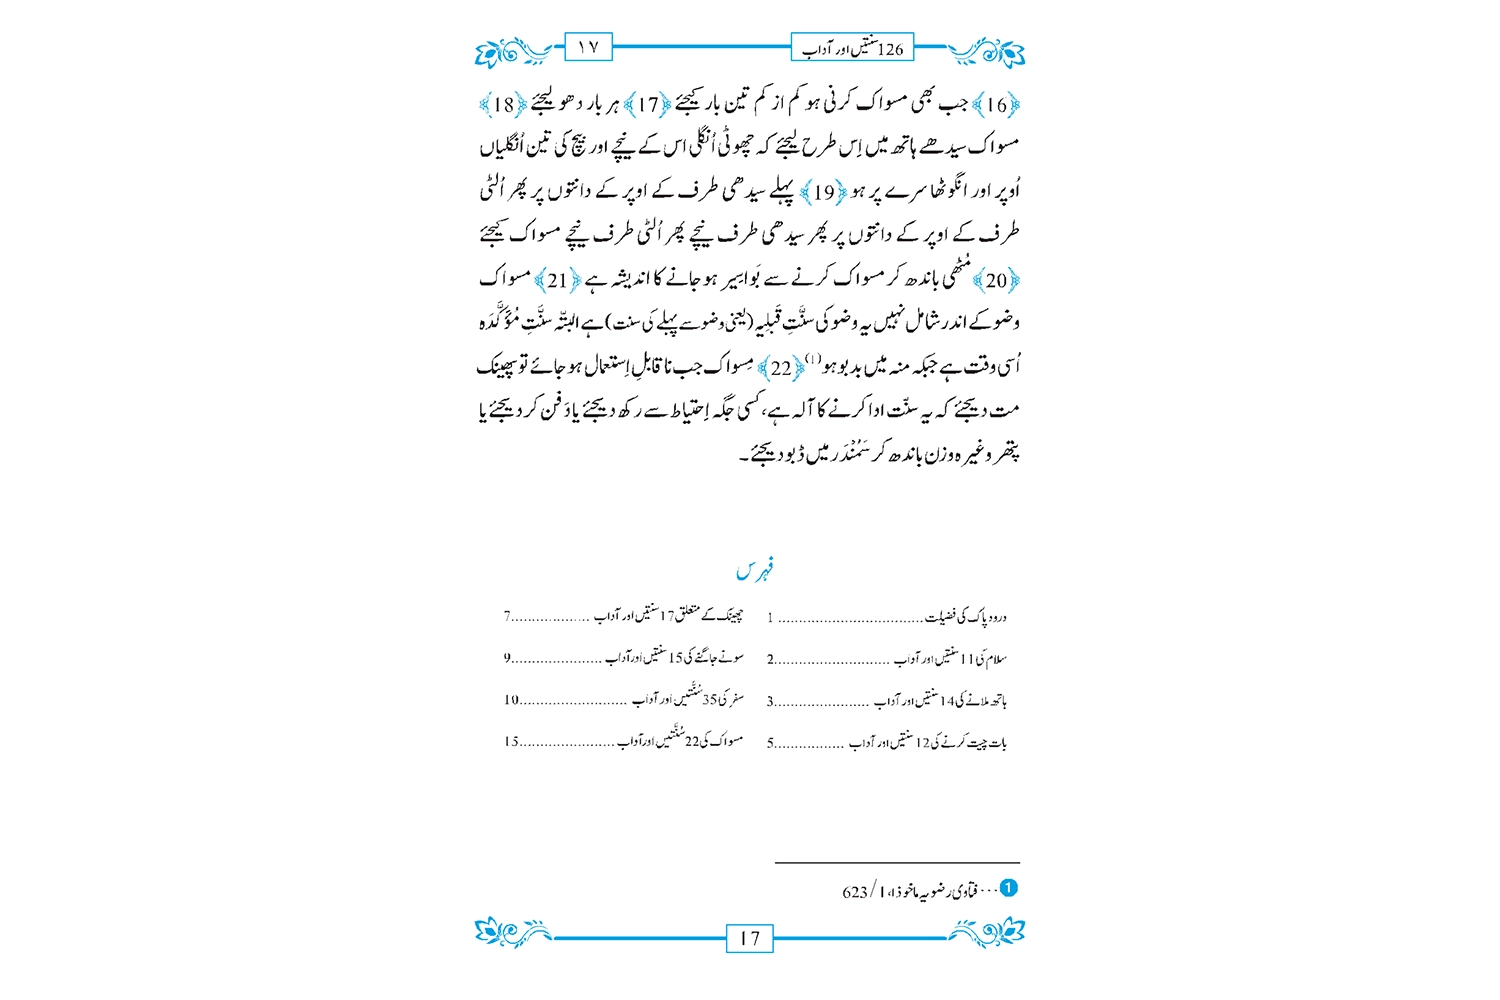 126 سنتیں اور آداب
١٧
﴿16﴾ جب بھی مسواک کرنی ہو کم از کم تین بار کیجئے ﴿17﴾ ہر بار دھو لیجئے ﴿18﴾
مسواک سیدھے ہاتھ میں اِس طرح لیجئے کہ چھوٹی اُنگلی اس کے نیچے اور بیچ کی تین اُنگلیاں
اُوپر اور انگوٹھا سرے پر ہو ﴿19﴾ پہلے سیدھی طرف کے اوپر کے دانتوں پر پھر اُلٹی
طرف کے اوپر کے دانتوں پر پھر سیدھی طرف نیچے پھر اُلٹی طرف نیچے مسواک کیجئے
﴿20﴾ مُٹھی باندھ کر مسواک کرنے سے بَواسِیر ہو جانے کا اندیشہ ہے ﴿21﴾ مسواک
وضو کے اندر شامل نہیں یہ وضو کی سنَّتِ قَبلِیہ (یعنی وضو سے پہلے کی سنت) ہے البتّہ سنَّتِ مُؤَکَّدَہ
اُسی وقت ہے جبکہ منہ میں بدبو ہو (1) ﴿22﴾ مِسواک جب ناقابلِ اِستعمال ہو جائے تو پھینک
مت دیجئے کہ یہ سنّت ادا کرنے کا آلہ ہے، کسی جگہ اِحتیاط سے رکھ دیجئے یا دَفن کر دیجئے یا
پتھر وغیرہ وزن باندھ کر سَمُنْدَر میں ڈبو دیجئے۔
فہرس
درود پاک کی فضیلت................................... 1
چھینک کے متعلق 17 سنتیں اور آداب ...................7
سلام کی 11 سنتیں اور آداب ............................2
سونے جاگنے کی 15 سنتیں اور آداب ......................9
ہاتھ ملانے کی 14 سنتیں اور آداب .......................3
سفر کی 35 سُنَّتیں اور آداب ..........................10
بات چیت کرنے کی 12 سنتیں اور آداب .................5
مسواک کی 22 سُنَّتیں اور آداب .......................15
1 ... فتاوی رضویہ ماخوذا، 1/623
17